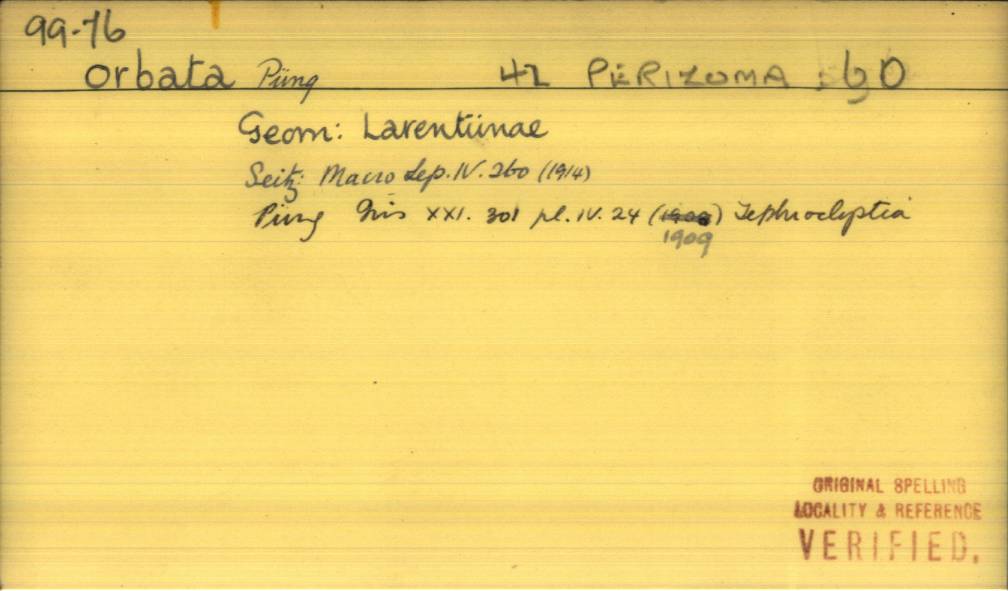 99-76
orbata Püng 42 PERIZOMA GD
Geom: Larentiinae
Seitz: Macro Lep. IV. 260 (1914)
Püng Iris XXI. 301 pl. IV. 24 (1908) Tephroclyptia
1909
ORIGINAL SPELLING
LOCALITY & REFERENCE
VERIFIED.